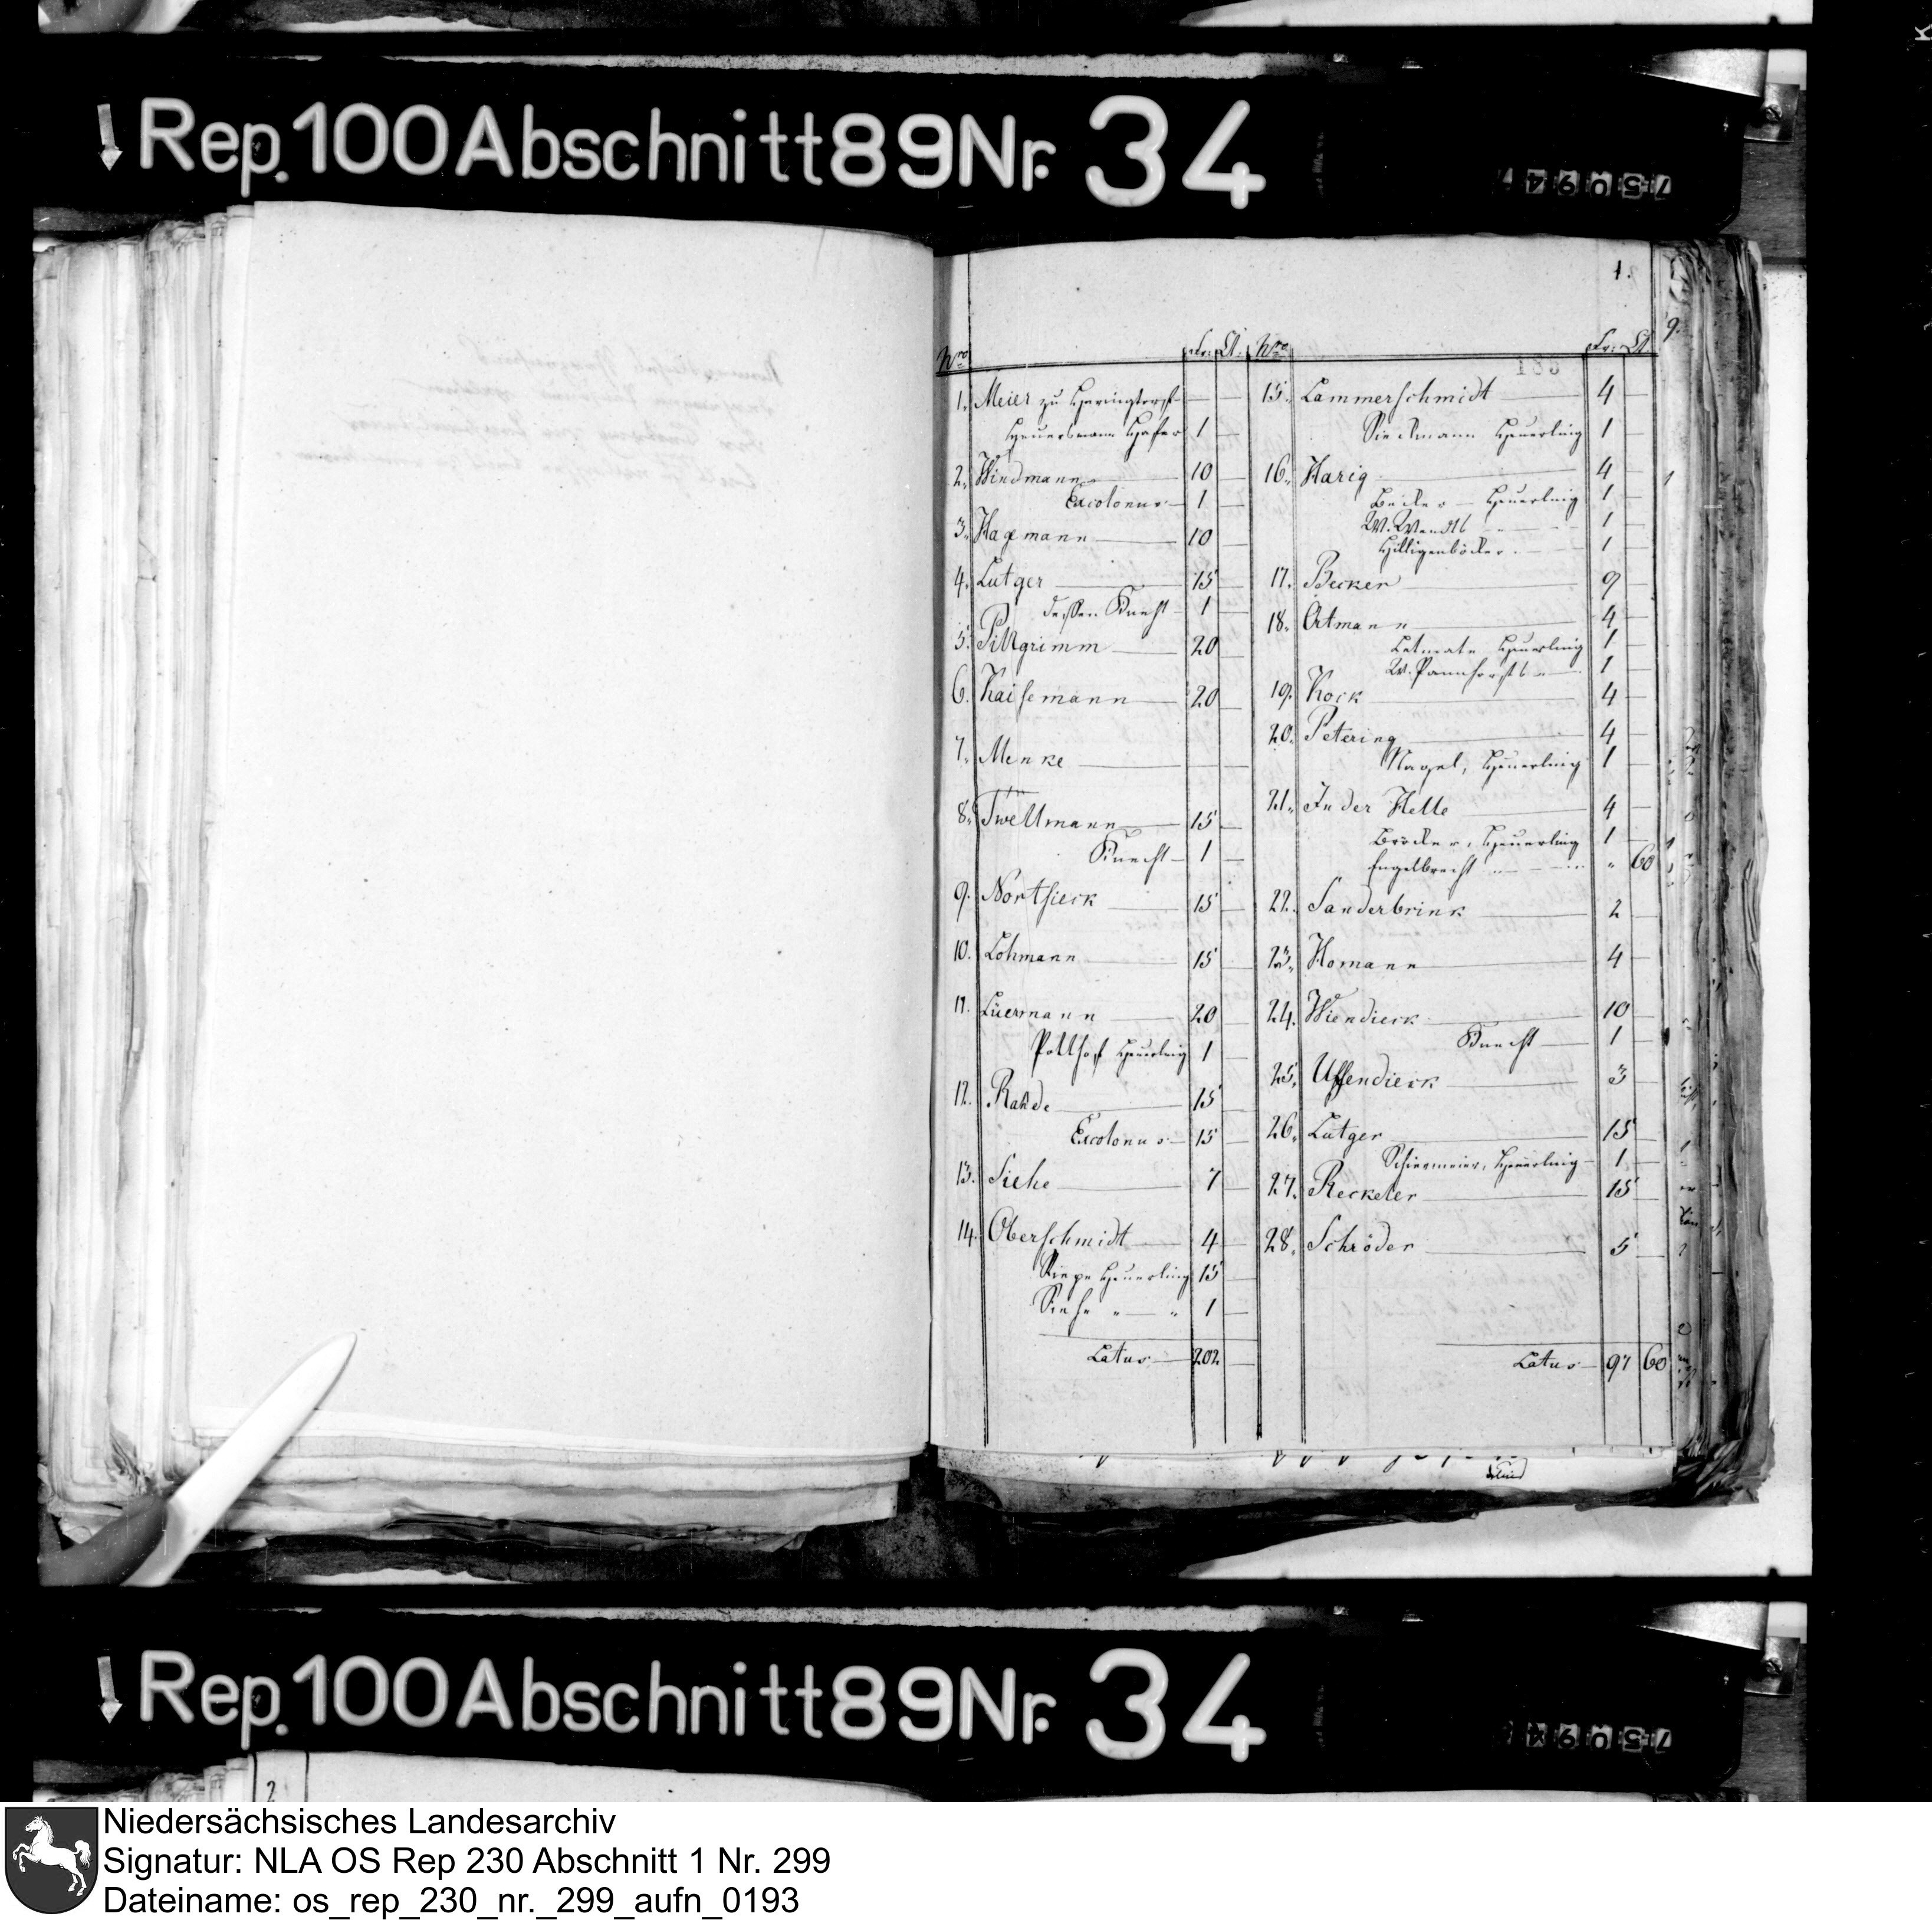 Rep. 100 Abschnitt 89 Nr. 34
1.
Nro Fr: Ct.
1. Meier zu Haringtorst —
Heuersmann Hafer 1 —
2. Windmann 10 —
Excolonus — 1 —
3. Hagemann 10 —
4. Lutger 15 —
dessen Knecht 1 —
5. Pillgrimm 20 —
6. Kaisemann 20 —
7. Menke —
8. Twellmann 15 —
Knecht — 1 —
9. Nortsieck 15 —
10. Lohmann 15 —
11. Lüermann 20 —
Pollhof Heuerling 1 —
12. Rahde 15 —
Excolonus — 15 —
13. Siehe 7 —
14. Oberschmidt 4 —
Siepe Heuerling 15 —
Siehe " — " 1 —
Latus — 202 —
Nro Fr: Ct.
15. Lammerschmidt 4 —
Sieckmann Heuerling 1 —
16. Harig 4 —
Böcker — Heuerling 1 —
W. Wendt 1
Hilligenböcker 1
17. Becker 9
18. Ortmann 4 —
Letmate Heuerling 1
W. Pannhorst 1
19. Kock 4 —
20. Petering 4 —
Nagel, Heuerling 1 —
21. In der Helle 4 —
Bröcker, Heuerling 1 —
Engelbrecht " 60
22. Sanderbrink 2 —
23. Homann 4 —
24. Wiendieck 10 —
Knecht 1 —
25. Uffendieck 3 —
26. Lutger 15 —
Schiermeier, Heuerling 1 —
27. Reckeler 15 —
28. Schröder 5 —
Latus — 97 60
9.
Rep. 100 Abschnitt 89 Nr. 34
2
Niedersächsisches Landesarchiv
Signatur: NLA OS Rep 230 Abschnitt 1 Nr. 299
Dateiname: os_rep_230_nr._299_aufn_0193